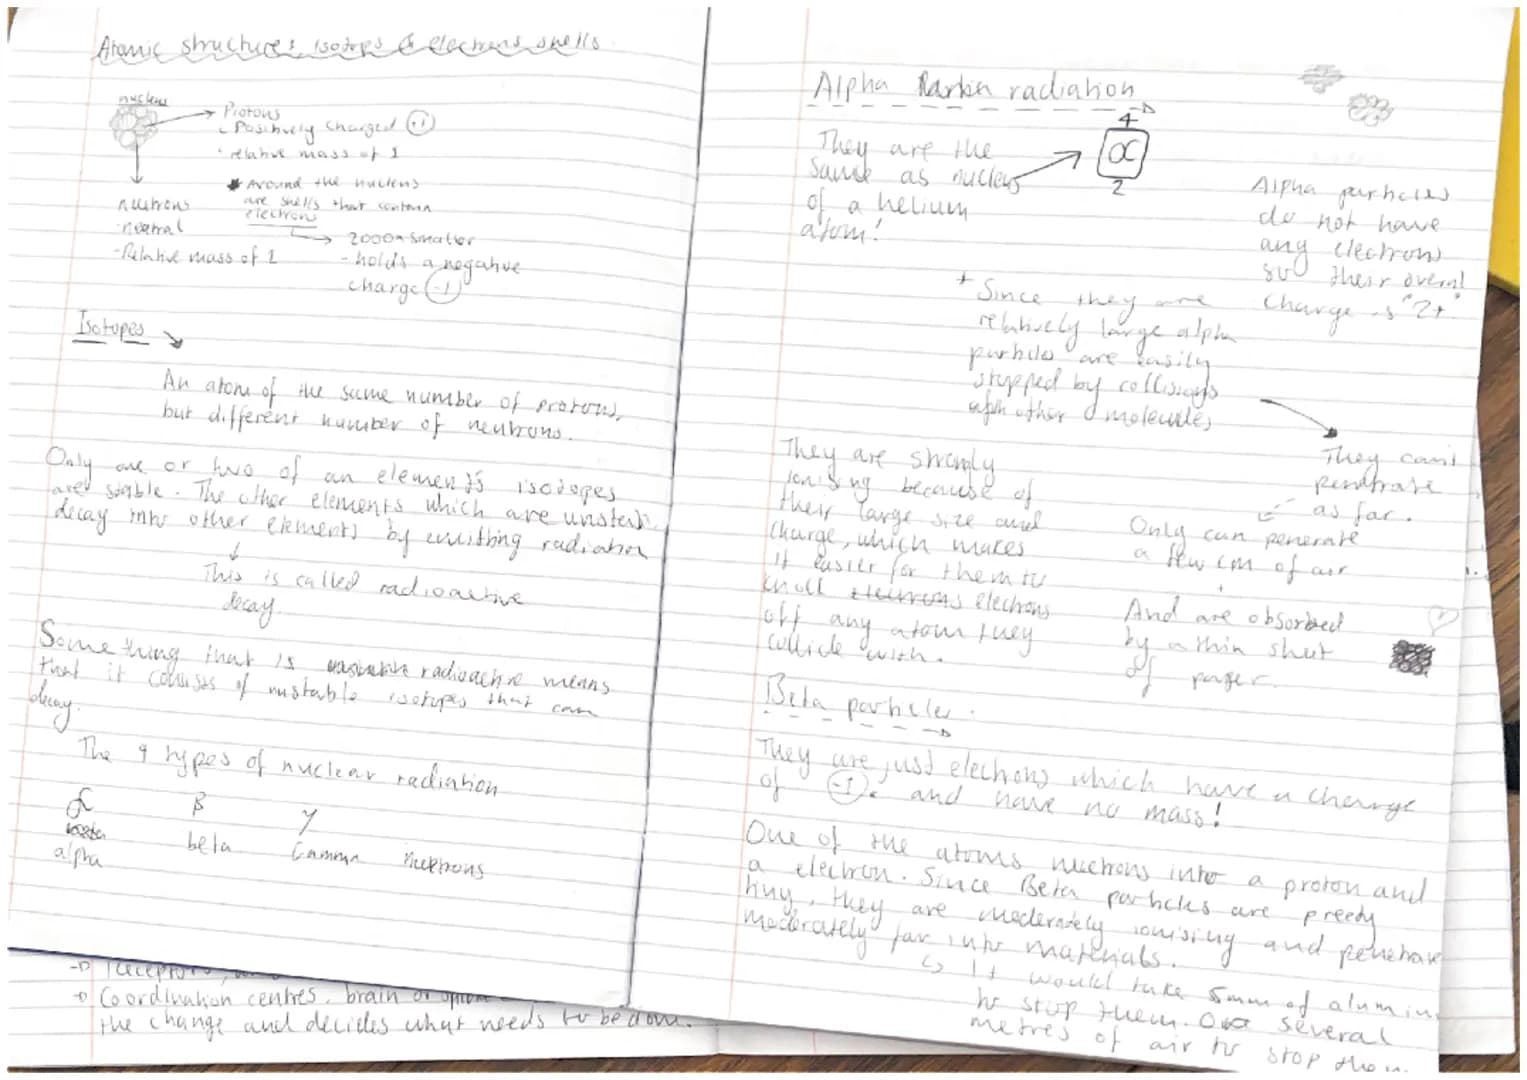 Atomic structures, isotops & electrons shells
nucleus
Protons
Positively Charged (+1)
relative mass of 1
neutrons
neutral
-Relative mass of 1
Around the nucleus
are shells that contain
electrons
2000x smaller
- holds a negative
charge (-1)
Isotopes
An atom of the same number of protons,
but different number of neutrons.
Only one or two of an element's isotopes
are stable. The other elements which are unstable
decay into other elements by emitting radiation
This is called radioactive
decay.
Something that is radioactive means
that it consists of unstable isotopes that can
decay.
The 4 types of nuclear radiation
α β γ
alpha beta Gamma neutrons
Alpha radiation
They are the
same as nucleus
of a helium
atom!
4
α
2
Alpha particles
do not have
any electrons
so their overall
Charge is "2+"
+ Since they are
relatively large alpha
particles are easily
stopped by collisions
other molecules
They can't
penetrate
as far.
Only can penerate
a few cm of air
+
And are absorbed
by a thin sheet
of paper.
They are strongly
ionising because of
their large size and
charge, which makes
it easier for them to
knoll electrons
off any atom they
collide with.
Beta particles.
They are just electrons which have a charge
of (-1). and have no mass!
One of the atoms neutrons into a proton and
a electron. Since Beta particles are preety
tiny, they are moderately ionising and penetrate
moderately far into materials.
It would take 5mm of alumin
to stop them. Or several
metres of air to stop them.
-> receptors,
-> Coordination centres, brain or spinal
the change and decides what needs to be done.